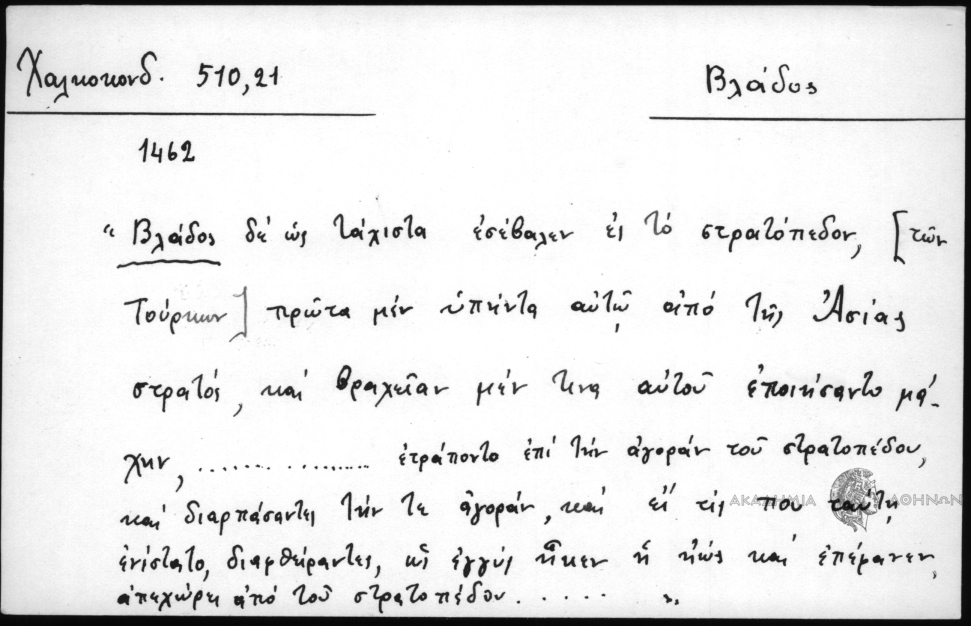 Χαλκοκονδ. 510,21
Βλάδος
1462
" Βλάδος δέ ὡς τάχιστα ἐσέβαλεν ἐς τό στρατόπεδον, [τῶν
Τούρκων] πρῶτα μέν ὑπήντα αὐτῷ ἀπό τῆς Ἀσίας
στρατός, καί βραχεῖαν μέν τινα αὐτοῦ ἐποιήσαντο μά-
χην, ....... ......... ἐτράποντο ἐπί τήν ἀγοράν τοῦ στρατοπέδου,
καί διαρπάσαντες τήν τε ἀγοράν, καί εἴ τις που ταύτῃ
ΑΚΑΔΗΜΙΑ ΑΘΗΝΩΝ
ἐνίστατο, διαφθείραντες, ὡς ἐγγύς ἧκεν ἡ ἠώς καί ἐπέμανεν,
ἀπεχώρει ἀπό τοῦ στρατοπέδου . . . . . ".